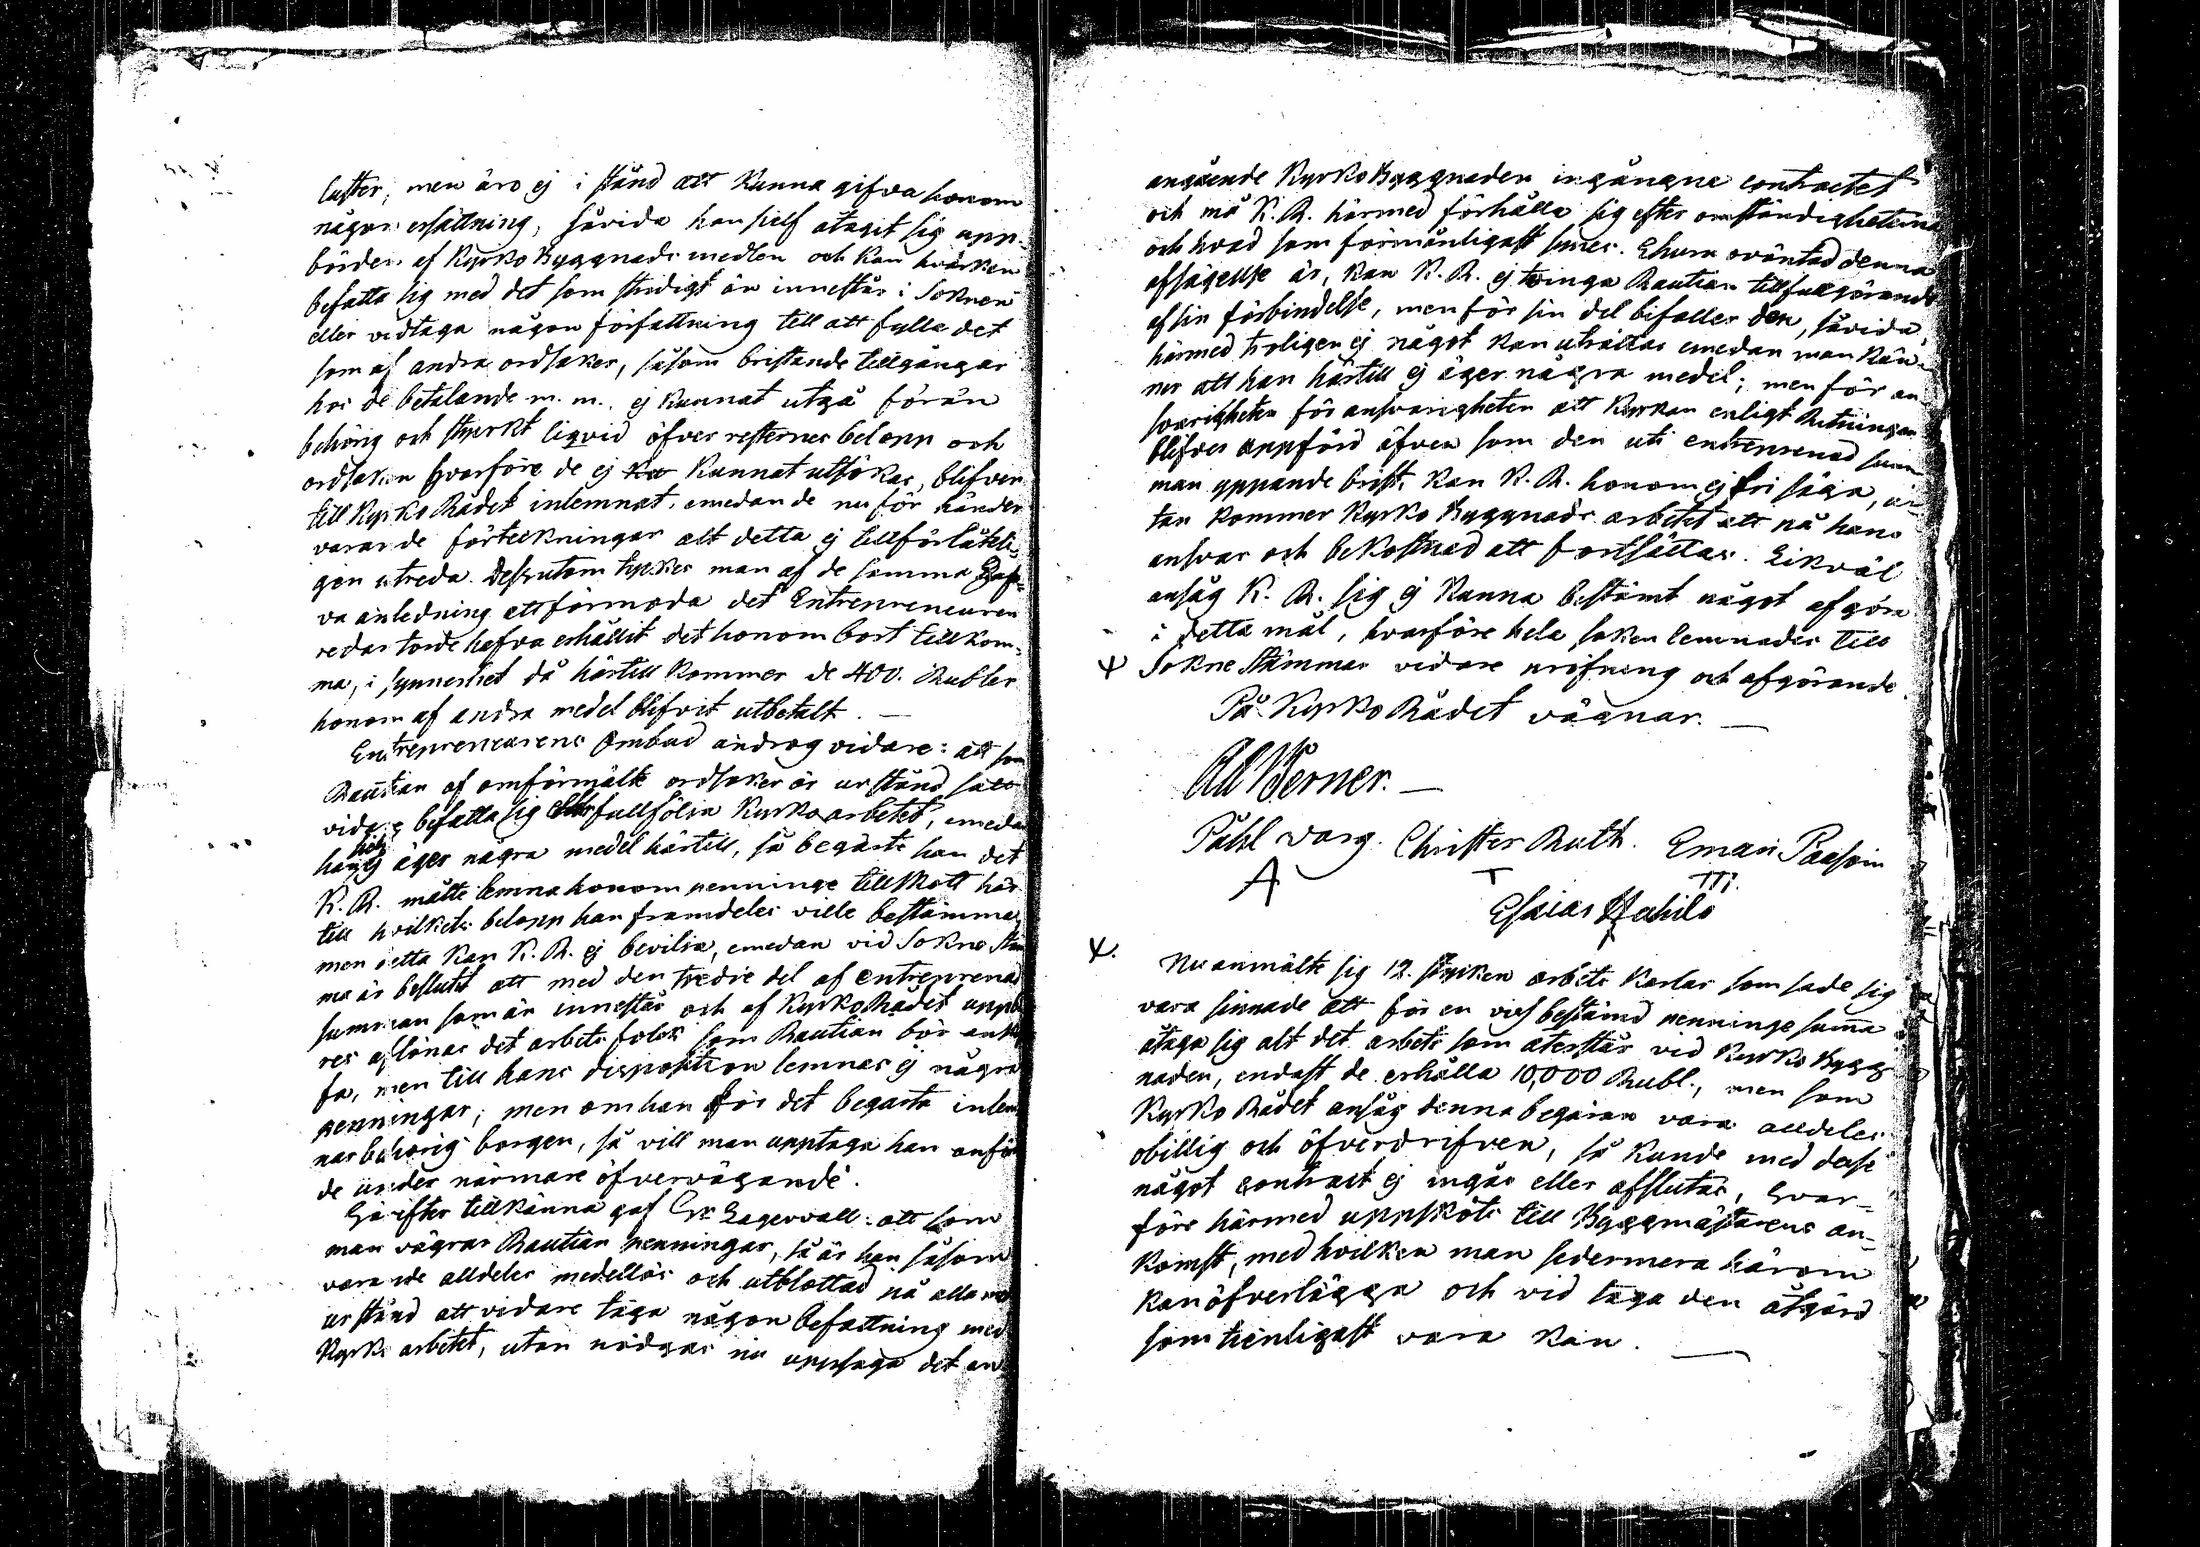 luster, men äro ej i stånd att kunna gifva honom
någon ersättning, såvida han sjelf åtagit sig upp-
börden af KyrkoByggnads medlen och kan hvarken
befatta sig med det som stridigt än innestår i Soknen
eller vidtaga någon författning till att fylla det
som af andra ordsaker, såsom bristande tillgångar
hos de betalande m. m. ej kunnat utgå förän
behörig och styrkt liqvid öfver resternes belopp och
ordsaken hvarföre de ej kunnat utsökas, blifver
till KyrkoRådet inlemnat, emedan de nu för händer
varande förteckningar alt detta ej tillförlåtli-
gen utreda. Dessutom tyckes man af de samma haf-
va anledning att förmoda det Entrepreneuren
redan torde hafva erhållit det honom bort tillkom-
ma, i synnerhet då härtill kommer de 400. Rubler
honom af andra medel blifvit utbetalt. —
Entrepreneurens Ombud androg vidare: att som
Bautian af omförmälte ordsaker är urstånd satt
vidare befatta sig fullfölja Kyrkoarbetet, emedan
han ej äger några medel härtill, så begärte han det
K. R. måtte lemna honom penninge tillskott här-
till hvilkets belopp han framdeles ville bestämma,
men detta kan K. R. ej bevilja, emedan vid Sokne Stäm
ma är beslutit att med den tredje del af entreprenad
summan som än innestår och af KyrkoRådet uppbä
res aflönas det arbets folck som Bautian bör anskaf
fa, men till hans disposition lemnas ej några
penningar; men om han för det begärta inlem
nar behörig borgen, så vill man upptaga han anför
de under närmare öfvervägande.
Härefter tillkänna gaf Hr Lagervall: att som
man vägrar Bautian penningar, så är han såsom
varande alldeles medellös och utblottad på alla
urstånd att vidare taga någon befattning med
Kyrko arbetet, utan nödgas nu uppsaga det an
angående KyrkoByggnaden ingångne contractet
och må K. R. härmed förhålla sig efter omständigheterna
och hvad som förmånligast synes. Ehuru oväntad denna
afsägelse är, kan K. R. ej tvinga Bautian till fullgörande
af sin förbindelse, men för sin del bifaller den, såvida
härmed troligen ej något kan uträttas emedan man kän-
ner att han härtill ej äger några medel; men för an-
svarigheten för ansvarigheten att Kyrkan enligt Ritningen
blifver uppförd äfven som den uti entreprenad sum
man yppande brist, kan K. R. honom ej fri säga, u-
tan kommer Kyrko Byggnads arbetet att på hans
ansvar och bekostnad att fortsättas. Likväl
ansåg K. R. sig ej kunna bestämt något afgöra
i detta mål, hvarföre hela saken lemnades till
Ψ Sokne Stämmas vidare pröfning och afgörande.
På KyrkoRådet vägnar. —
Ad Werner. —
Påhl varg. Christer Ruth. Eman Paasoin
A T TTT.
Esaias Hahilo
Ψ. Nu anmälte sig 12. stycken arbets karlar som sade sig
vara sinnade att för en viss bestämd penninge summa
åtaga sig alt det arbete som återstår vid Kyrko Bygg
naden, endast de erhålla 10,000 Rubl., men som
KyrkoRådet ansåg denna begäran vara alldeles
obillig och öfverdrifven, så kunde med desse
något contract ej ingås eller afslutas, hvar-
före härmed uppsköts till Byggmästarens an-
komst, med hvilken man sedermera härom
kan öfverlägga och vid taga den åtgärd
som tjenligast vara kan. —